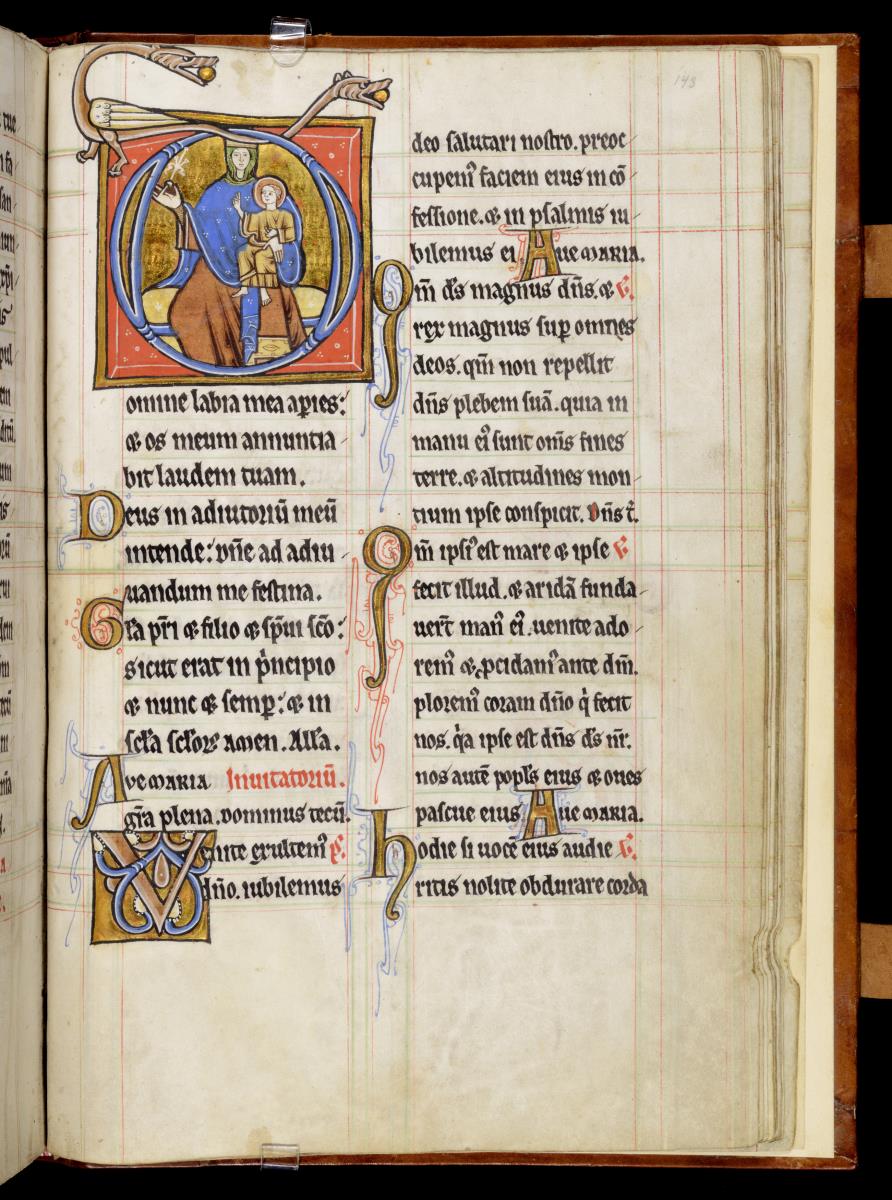 148
Domine labia mea apies:
& os meum annuntia
bit laudem tuam.
Deus in adiutoriū meū
intende: dñe ad adiu
uandum me festina.
Gła pr̄i & filio & sp̄ui sc̄o:
sicut erat in p̍ncipio
& nunc & semp: & in
scła scłoꝝ amen. Alła.
Ave maria Inuitatoriū.
gr̄a plena. dominus tecū.
Venite exultem᷒ p̄.
dño. iubilemus
deo salutari nostro. preoc
cupem᷒ faciem eius in cō
fessione. & in psalmis iu
bilemus ei Aue maria.
Qm̄ ds̄ magnus dn̄s. & v̄.
rex magnus sup omnes
deos. qm̄ non repellit
dn̄s plebem suā. quia in
manu ei᷒ sunt om̄s fines
terre. & altitudines mon
tium ipse conspicit. Dn̄s t̄.
Qm̄ ipsi᷒ est mare & ipse v̄
fecit illud. & aridā funda
uert̄ man᷒ ei᷒. uenite ado
rem᷒ & pcidam᷒ ante dm̄.
plorem᷒ coram dño q̍ fecit
nos. q̍a ipse est dn̄s ds̄ nr̄.
nos autē popłs eius & oues
pascue eius Aue maria.
Hodie si uocē eius audie v̄.
ritis nolite obdurare corda